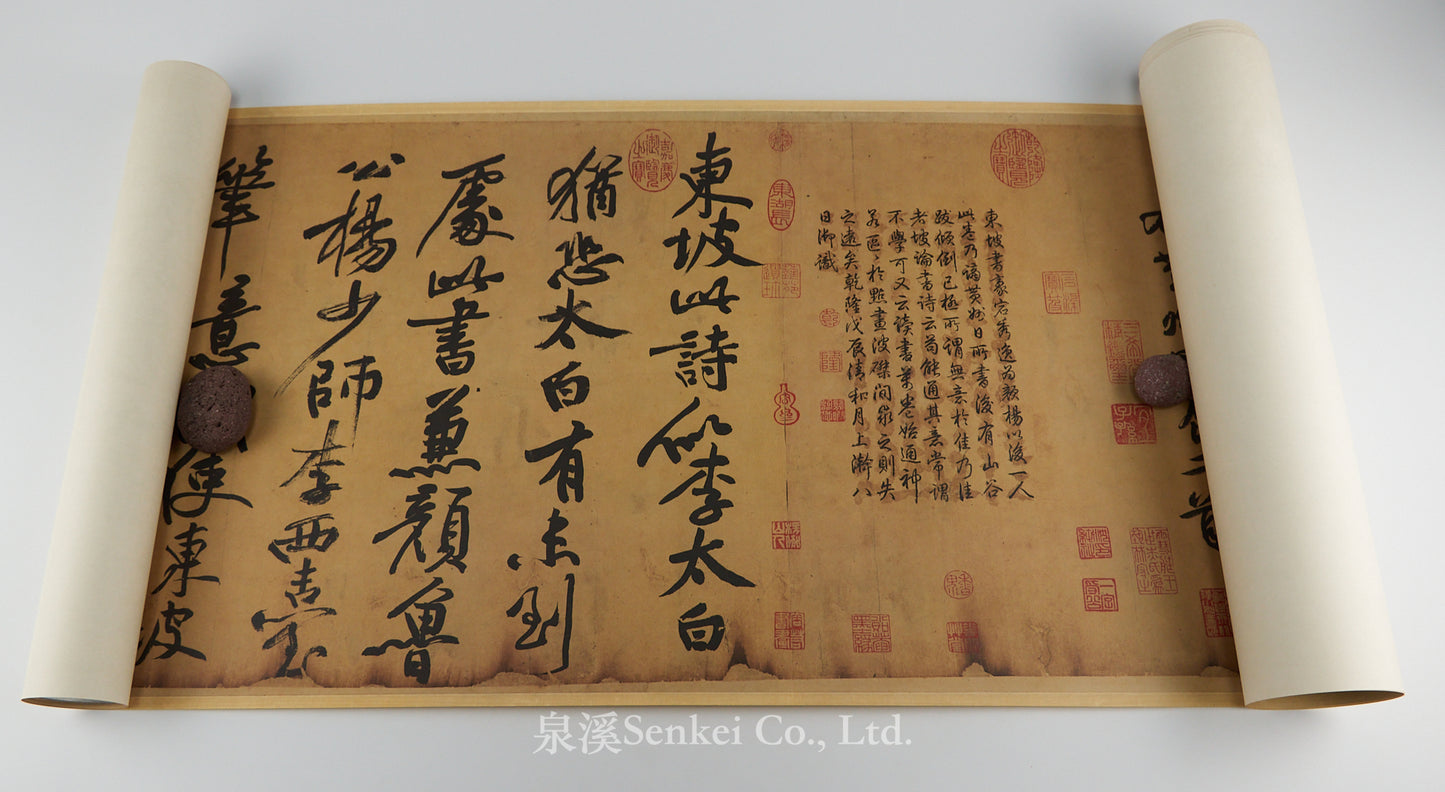 二首
乾隆御覽之寶
東坡書豪宕秀逸為顏楊以後一人
此卷乃謫黃州日所書後有山谷
跋傾倒已極所謂無意於佳乃佳
者坡論書詩云苟能通其意常謂
不學可又云讀書萬卷始通神
若區々於點畫波磔間求之則失
之遠矣乾隆戊辰清和月上澣八
日御識
乾
隆
東湖長
嘉慶御覽之寶
東坡此詩似李太白
猶恐太白有未到
處此書兼顏魯
公楊少師李西臺
筆意使東坡
泉溪Senkei Co., Ltd.